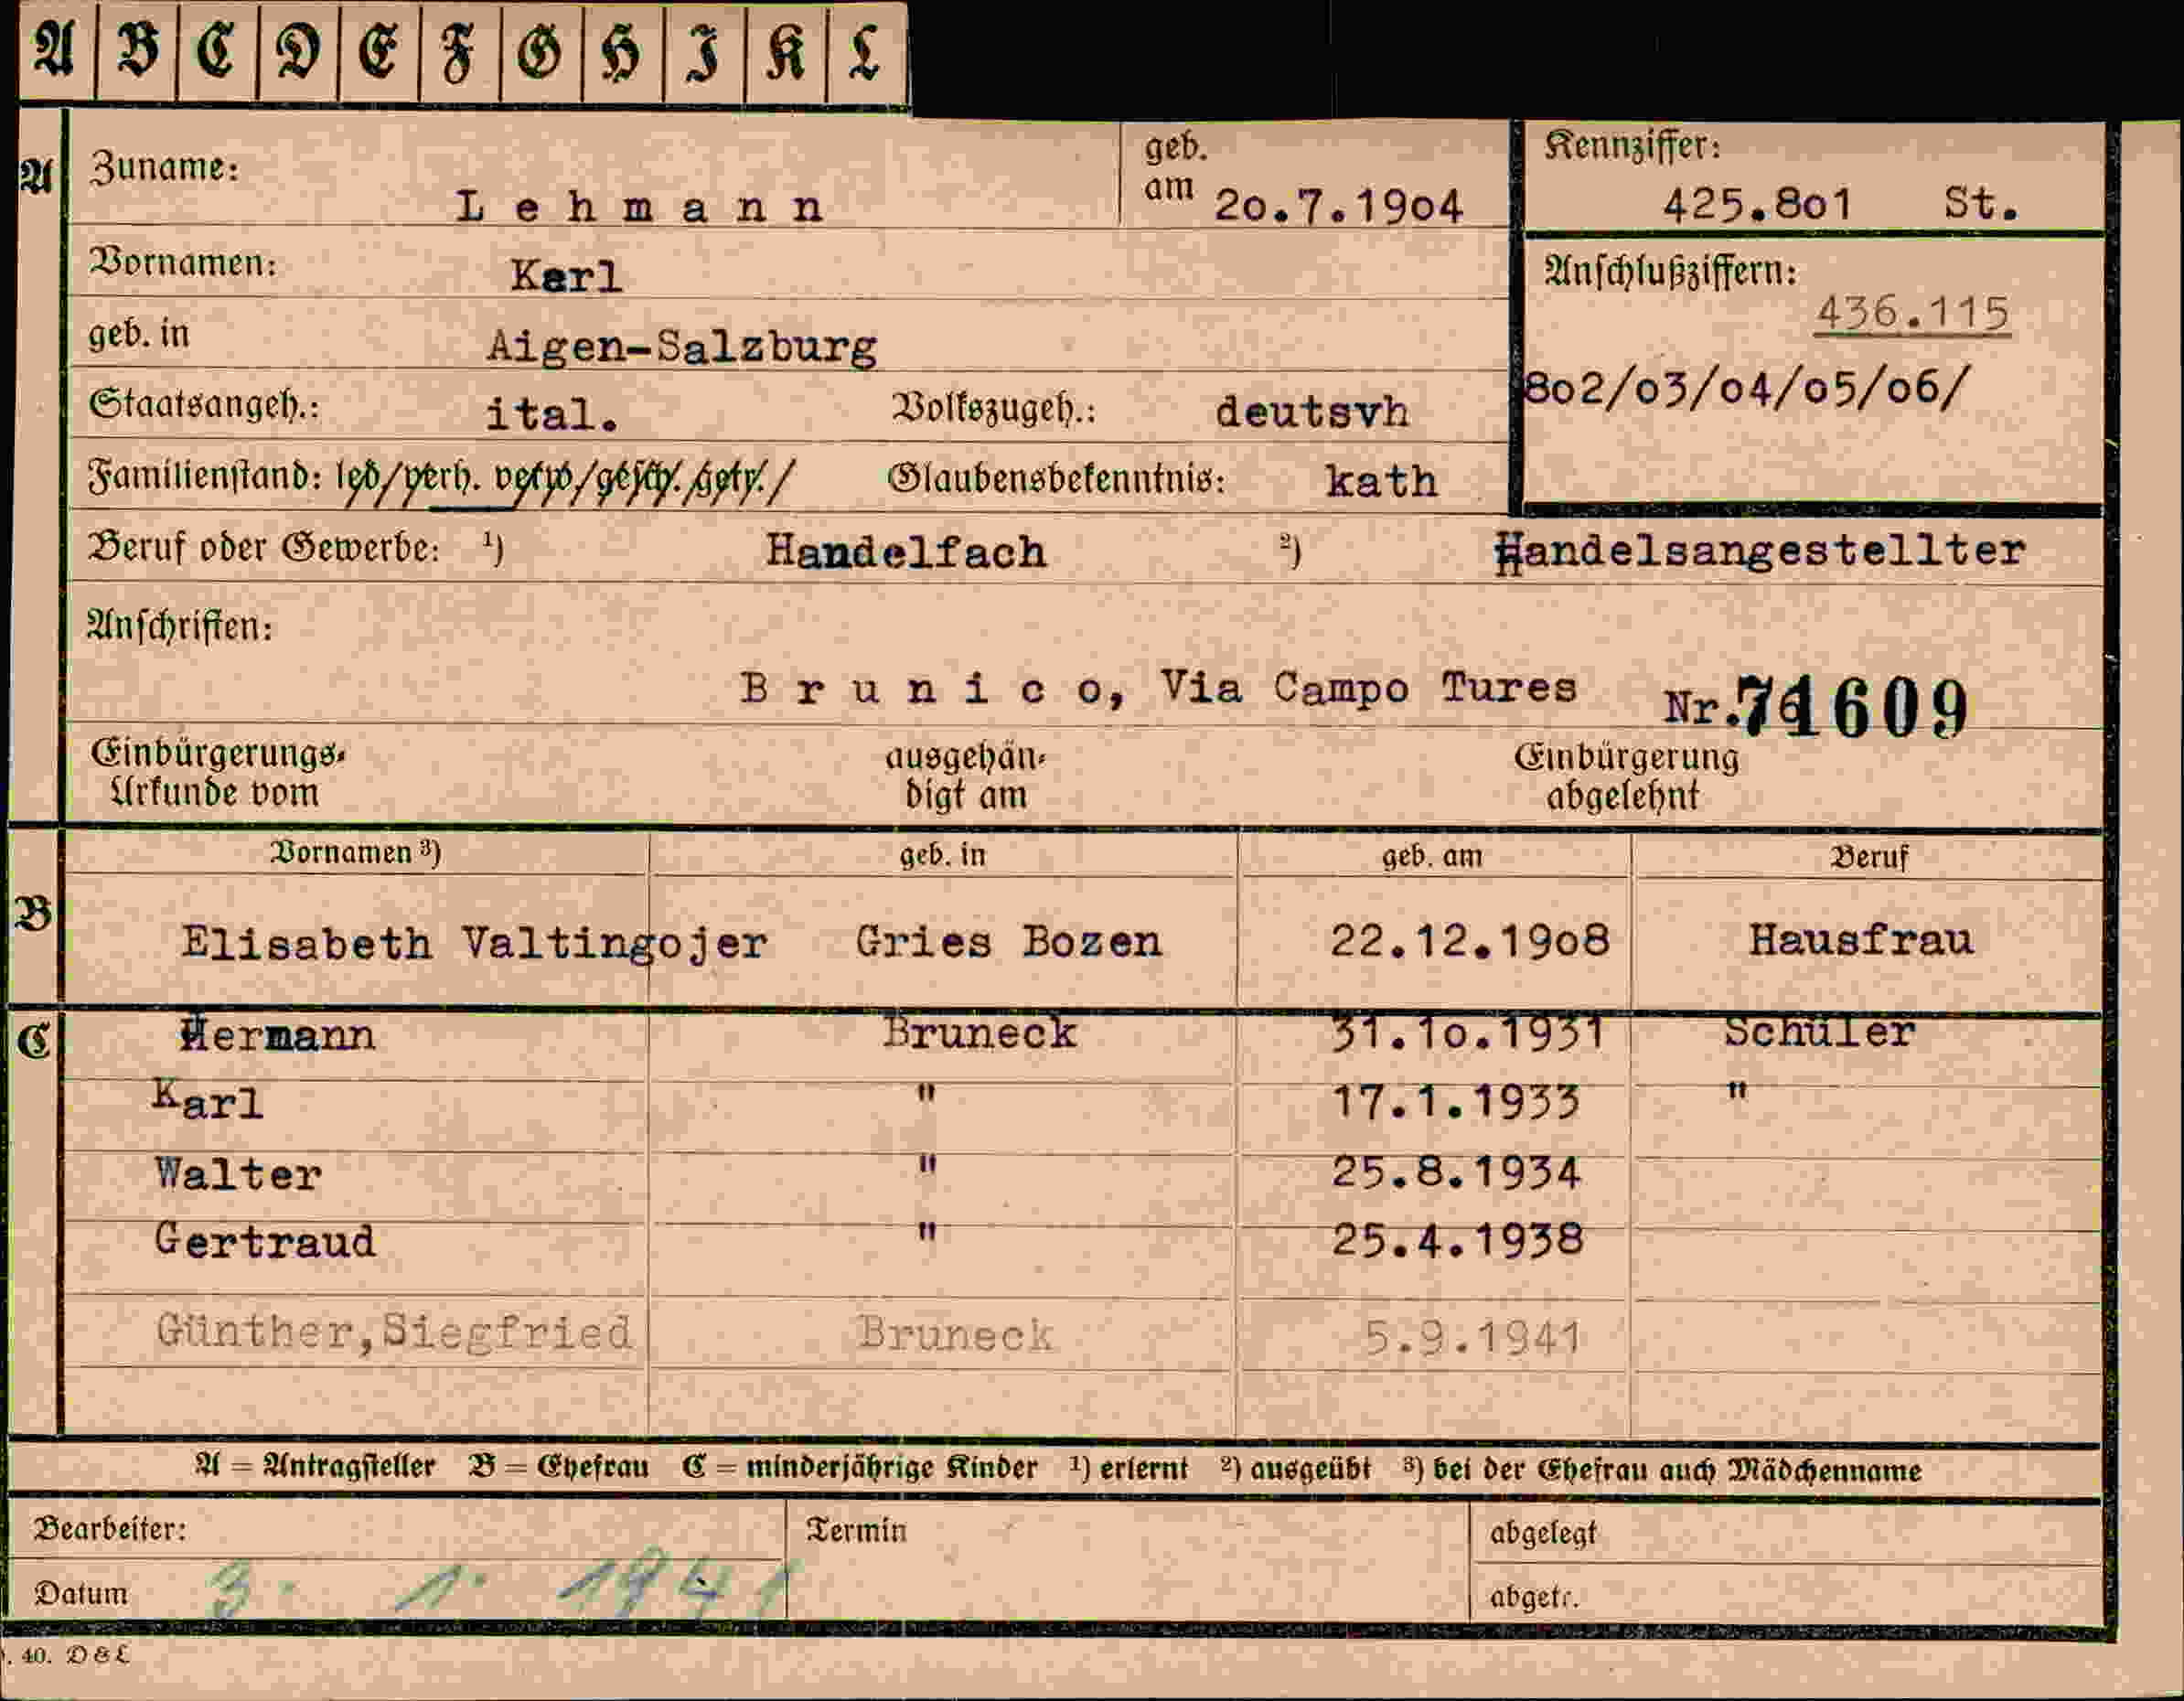 A B C D E F G H I K L
A Zuname: Lehmann geb. am 20.7.1904 Kennziffer: 425.801 St.
Vornamen: Karl Anschlußziffern: 436.115
geb. in Aigen-Salzburg
Staatsangeh.: ital. Volkszugeh.: deutsvh 802/03/04/05/06/
Familienstand: led/verh. verw/gesch./getr./ Glaubensbekenntnis: kath
Beruf oder Gewerbe: 1) Handelfach 2) Handelsangestellter
Anschriften:
Brunico, Via Campo Tures Nr. 609
Einbürgerungs- ausgehän- Einbürgerung
Urkunde vom digt am abgelehnt
Vornamen 3) geb. in geb. am Beruf
B Elisabeth Valtingojer Gries Bozen 22.12.1908 Hausfrau
C Hermann Bruneck 31.10.1931 Schüler
Karl " 17.1.1933 "
Walter " 25.8.1934
Gertraud " 25.4.1938
Günther,Siegfried Bruneck 5.9.1941
A = Antragsteller B = Ehefrau C = minderjährige Kinder 1) erlernt 2) ausgeübt 3) bei der Ehefrau auch Mädchenname
Bearbeiter: Termin abgelegt
Datum 3. 1. 1941 abgetr.
40. D & L